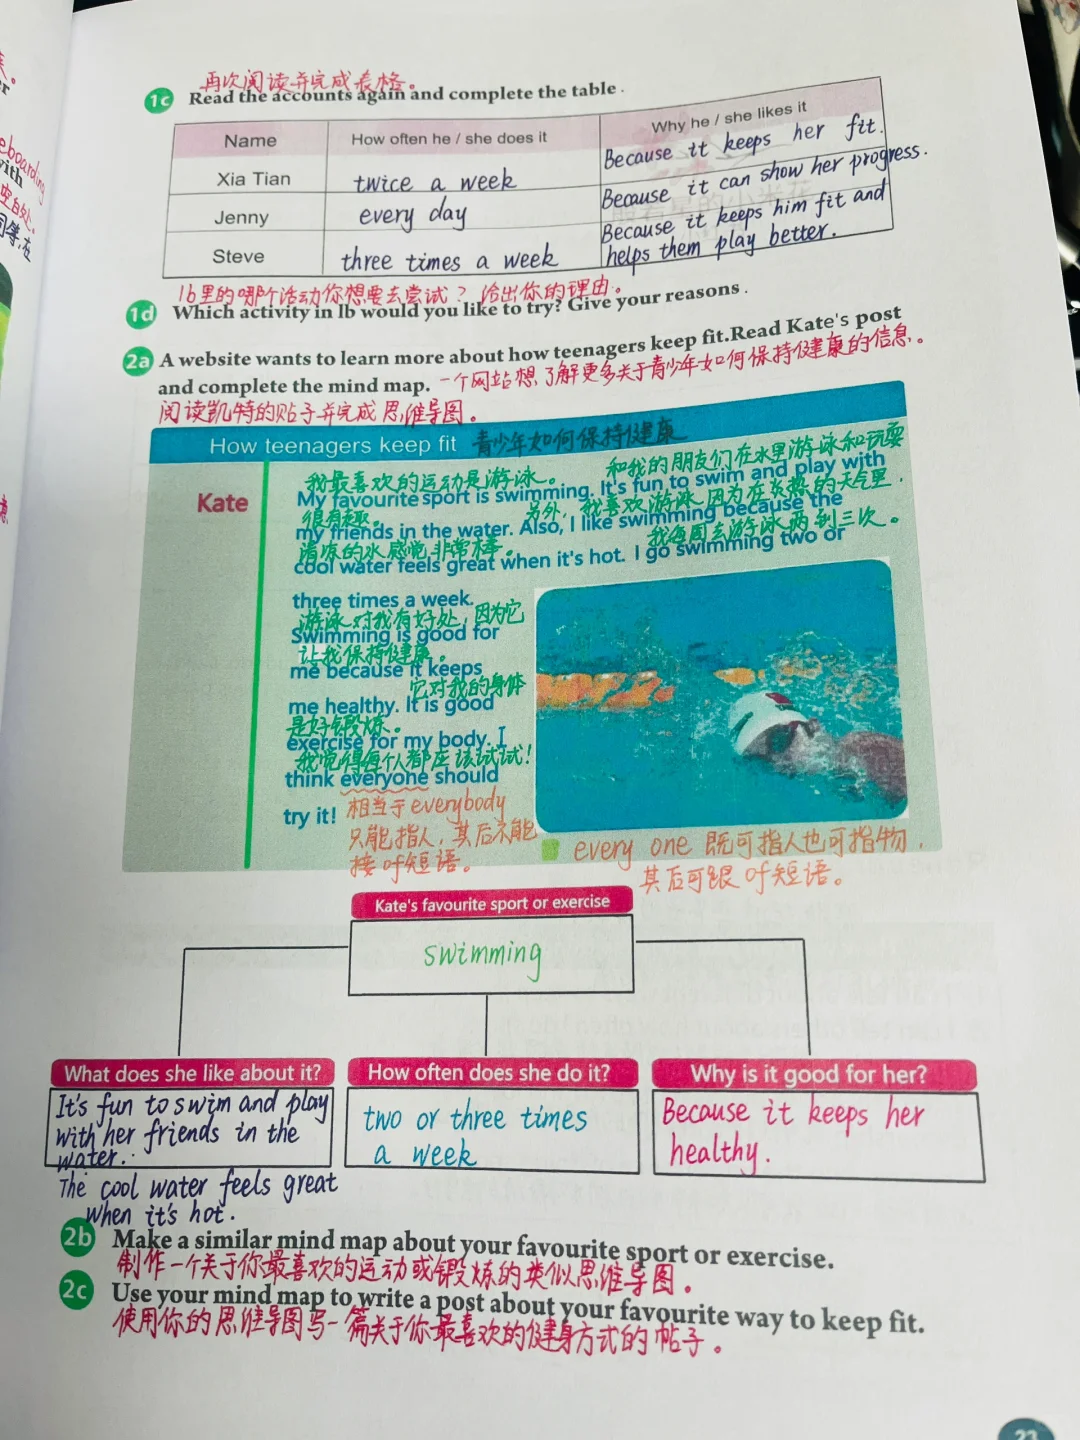 再次阅读并完成表格。
1c Read the accounts again and complete the table.
Name How often he / she does it Why he / she likes it
Xia Tian twice a week Because it keeps her fit.
Jenny every day Because it can show her progress.
Steve three times a week Because it keeps him fit and
helps them play better.
1b里的哪个活动你想要去尝试？给出你的理由。
1d Which activity in 1b would you like to try? Give your reasons.
2a A website wants to learn more about how teenagers keep fit.Read Kate's post
and complete the mind map. 一个网站想了解更多关于青少年如何保持健康的信息。
阅读凯特的贴子并完成思维导图。
How teenagers keep fit 青少年如何保持健康
Kate
我最喜欢的运动是游泳。 和我的朋友们在水里游泳和玩耍
My favourite sport is swimming. It's fun to swim and play with
很有趣。 另外，我喜欢游泳因为在炎热的天气里，
my friends in the water. Also, I like swimming because the
清凉的水感觉非常棒。 我每周去游泳两到三次。
cool water feels great when it's hot. I go swimming two or
three times a week.
游泳对我有好处，因为它
Swimming is good for
让我保持健康。
me because it keeps
它对我的身体
me healthy. It is good
是好锻炼。
exercise for my body. I
我觉得每个人都应该试试！
think everyone should
try it! 相当于everybody
只能指人，其后不能
接of短语。
every one 既可指人也可指物，
其后可跟of短语。
Kate's favourite sport or exercise
swimming
What does she like about it? How often does she do it? Why is it good for her?
It's fun to swim and play
with her friends in the
water.
The cool water feels great
when it's hot.
two or three times
a week
Because it keeps her
healthy.
2b Make a similar mind map about your favourite sport or exercise.
制作一个关于你最喜欢的运动或锻炼的类似思维导图。
2c Use your mind map to write a post about your favourite way to keep fit.
使用你的思维导图写一篇关于你最喜欢的健身方式的帖子。
23